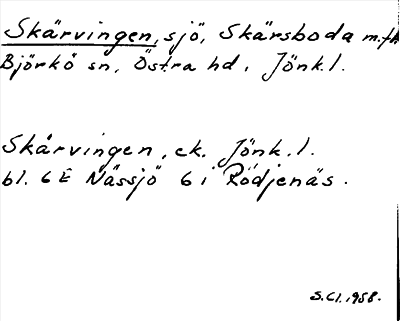 Skärvingen, sjö, Skärsboda m.fl.
Björkö sn, Östra hd, Jönk.l.
Skärvingen, ek. Jönk.l.
bl. 6E Nässjö 6 i Rödjenäs.
S.Cl. 1958.